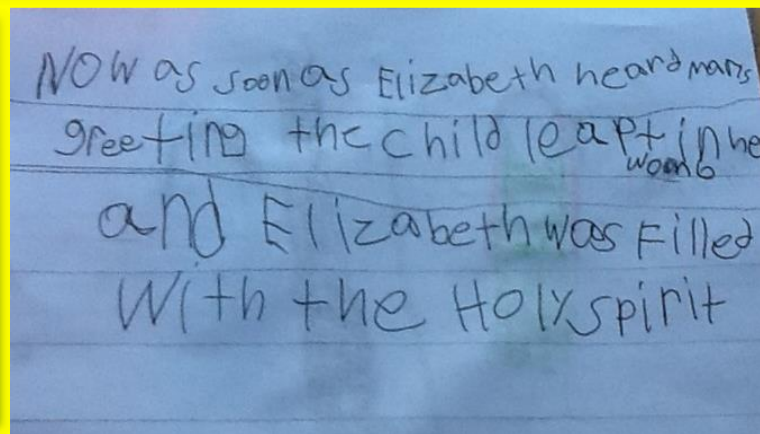 NOW as soon as Elizabeth heard marys
greeting the child leapt in he
womb
and Elizabeth was Filled
With the Holy spirit